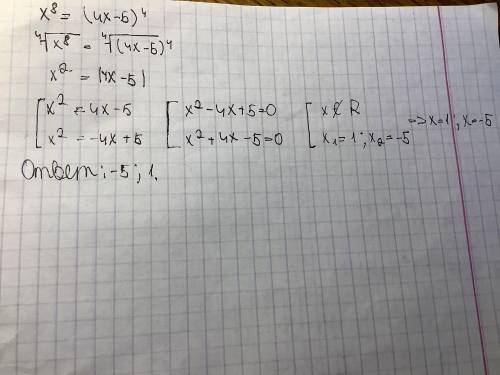 x⁸ = (4x-5)⁴
⁴√x⁸ = ⁴√(4x-5)⁴
x² = |4x-5|
[x² = 4x-5 [x²-4x+5=0 [x ∉ R
[x² = -4x+5 [x²+4x-5=0 [x₁=1; x₂=-5 => x=1; x=-5
Ответ: -5; 1.